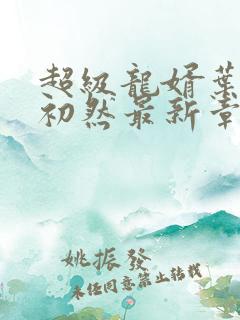 超級龍婿葉
初然最新章
姚振發
未經同意禁止轉載